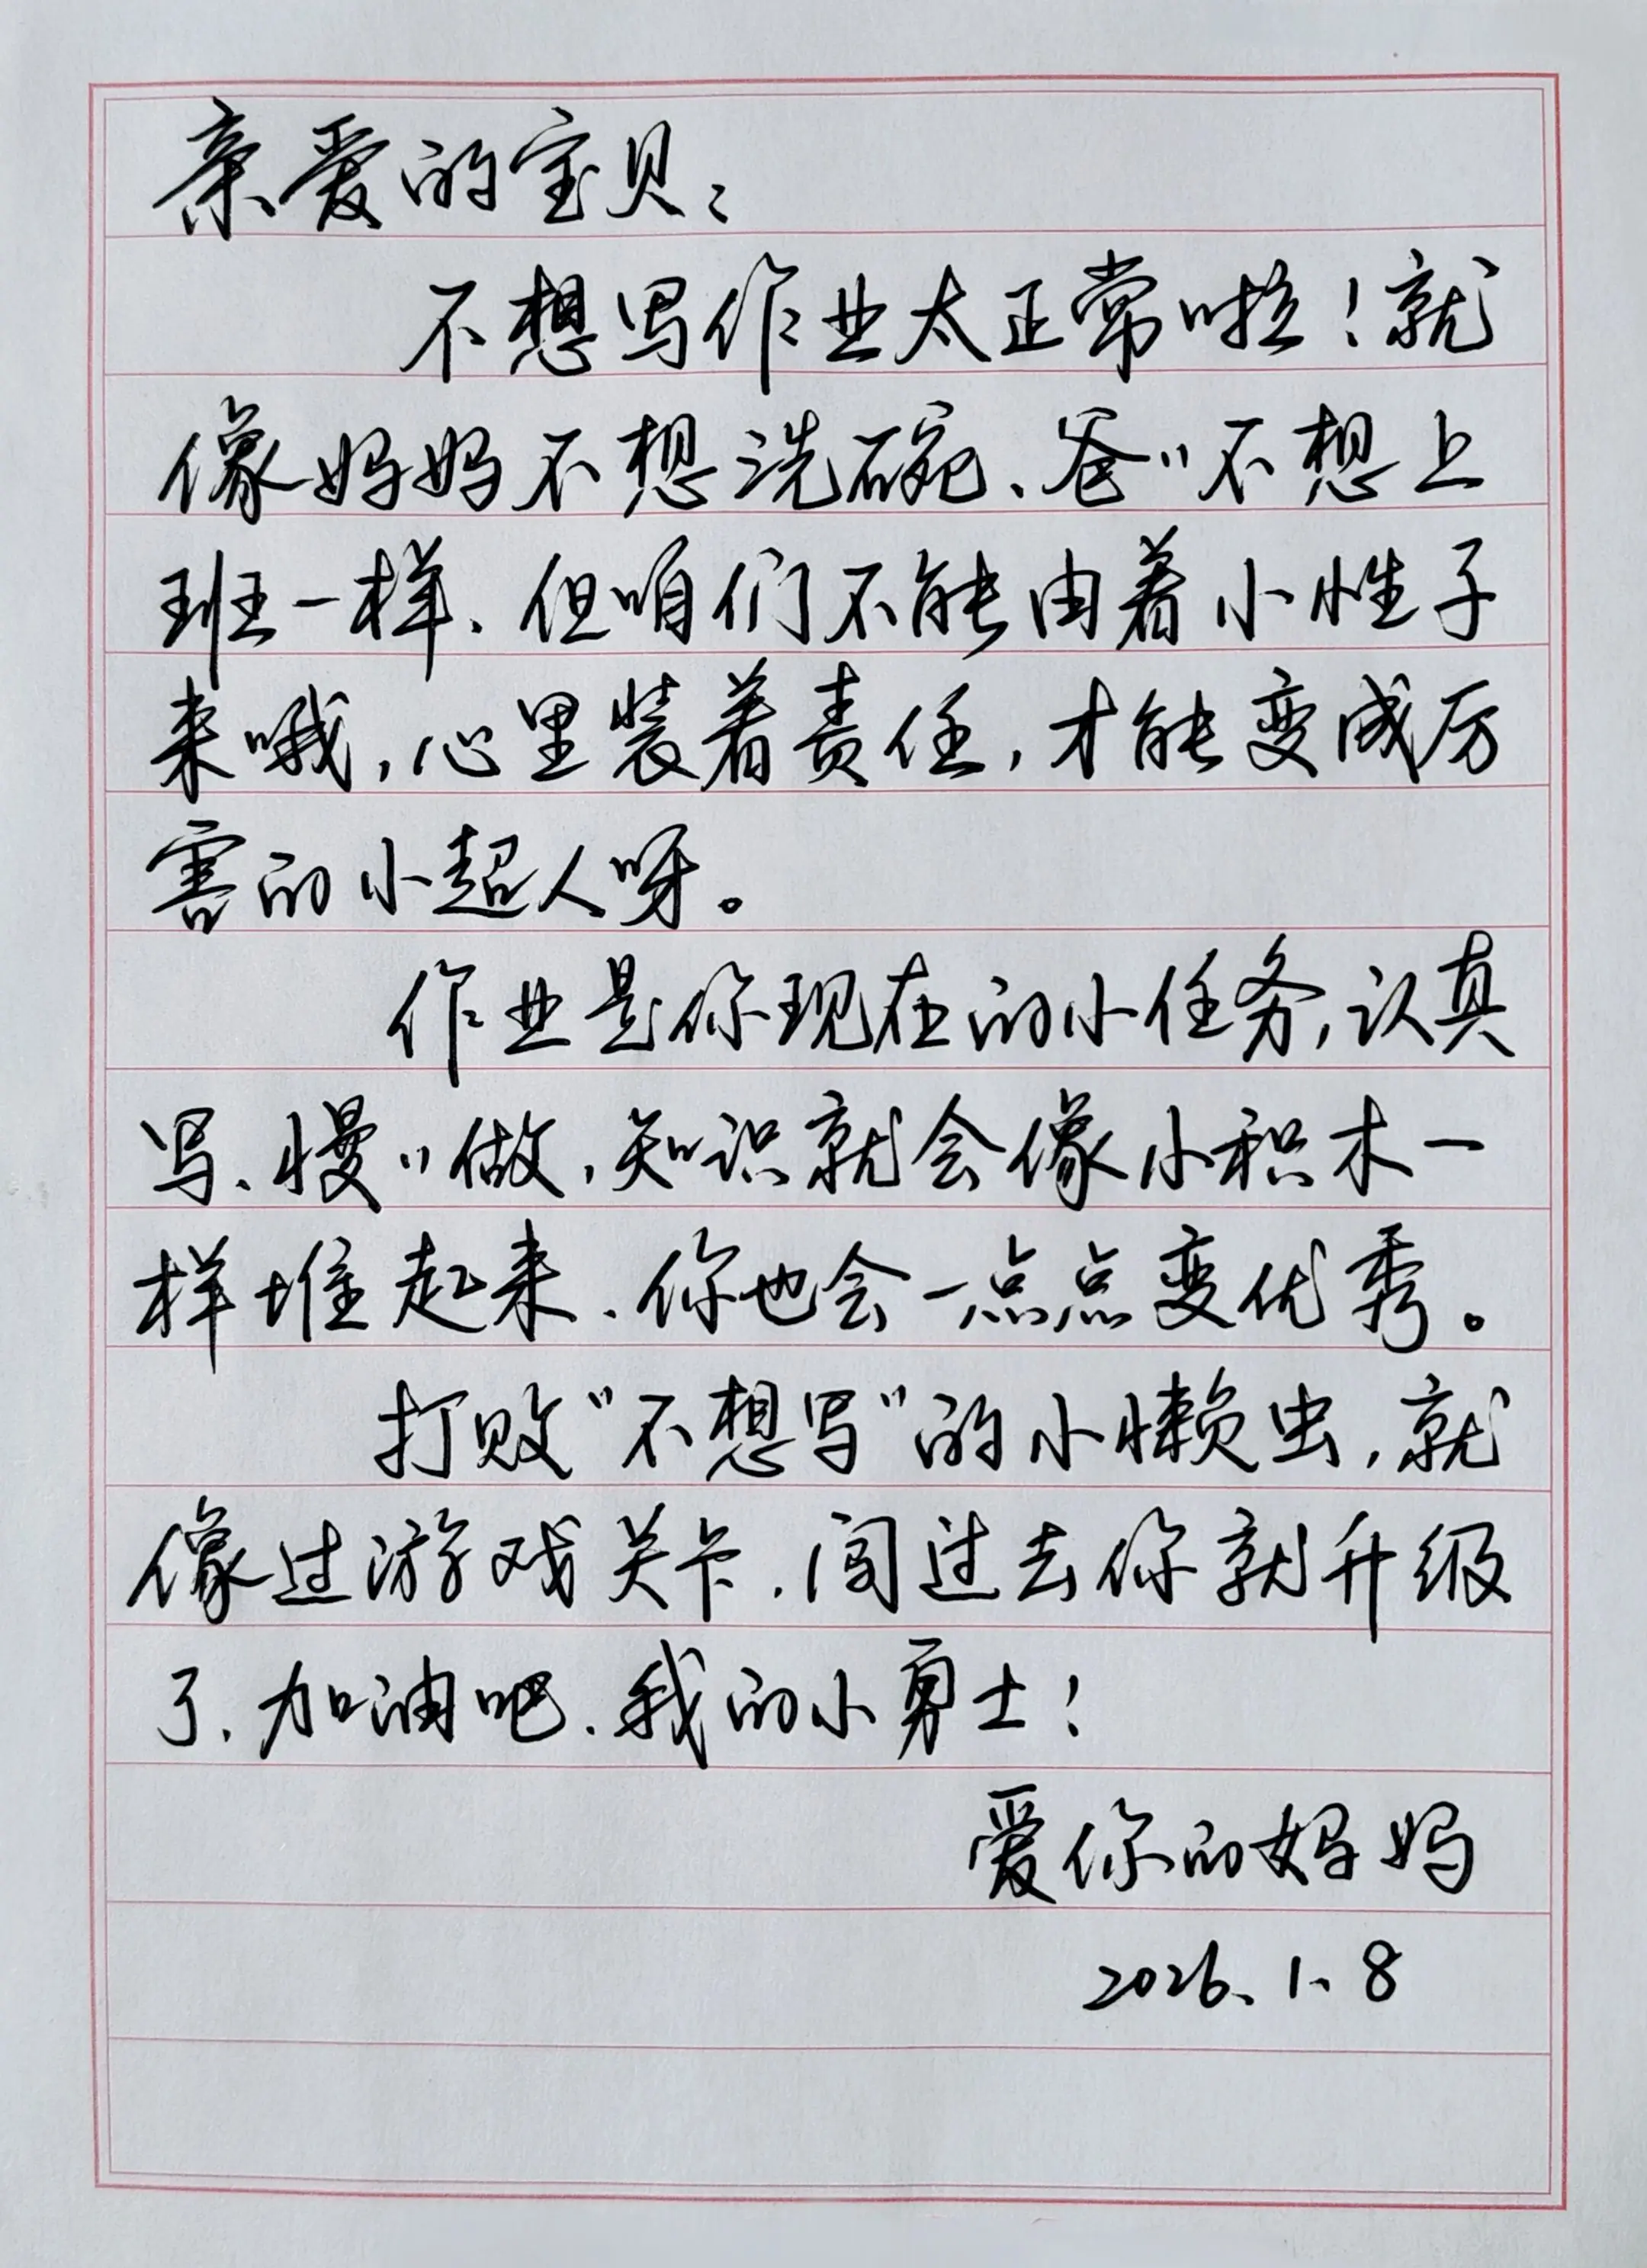 亲爱的宝贝：
不想写作业太正常啦！就
像妈妈不想洗碗、爸〃不想上
班一样、但咱们不能由着小性子
来哦，心里装着责任，才能变成厉
害的小超人呀。
作业是你现在的小任务，认真
写、慢〃做，知识就会像小积木一
样堆起来、你也会一点点变优秀。
打败“不想写”的小懒虫，就
像过游戏关卡，闯过去你就升级
了、加油吧、我的小勇士！
爱你的妈妈
2026、1、8